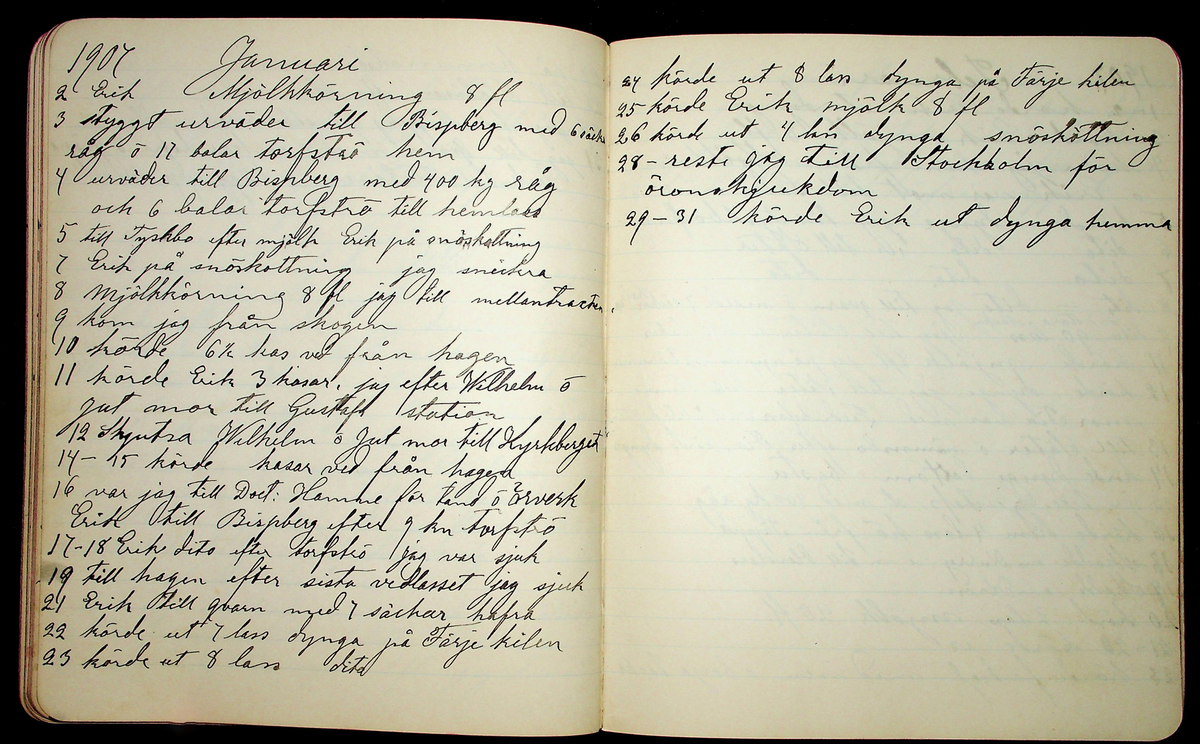 1907 Januari
2 Erik Mjölkkörning 8 fl
3 styggt urväder till Bispberg med 6 säckar
råg o 17 balar torfströ hem
4 urväder till Bispberg med 400 kg råg
och 6 balar torfströ till hemlass
5 till Tyskbo efter mjölk Erik på snöskottning
7 Erik på snöskottning jag snickra
8 Mjölkkörning 8 fl jag till mellantrackten
9 kom jag från skogen
10 körde 6½ kas ved från hagen
11 körde Erik 3 kasar, jag efter Wilhelm o
gut mor till Gustafs station
12 Skjutsa Wilhelm o gut mor till Kyrkberget
14 – 15 körde kasar ved från hagen
16 var jag till Doct: Hamme för tand o örverk
Erik till Bispberg efter 9 kn torfströ
17-18 Erik dito efter torfströ jag var sjuk
19 till hagen efter sista vedlasset jag sjuk
21 Erik till qvarn med 7 säckar hafra
22 körde ut 7 lass dynga på Färje kilen
23 körde ut 8 lass dito
24 körde ut 8 lass dynga på Färje kilen
25 körde Erik mjölk 8 fl
26 körde ut 4 lass dynga snöskottning
28 – reste jag till Stockholm för
öronskjukdom
29 – 31 körde Erik ut dynga hemma